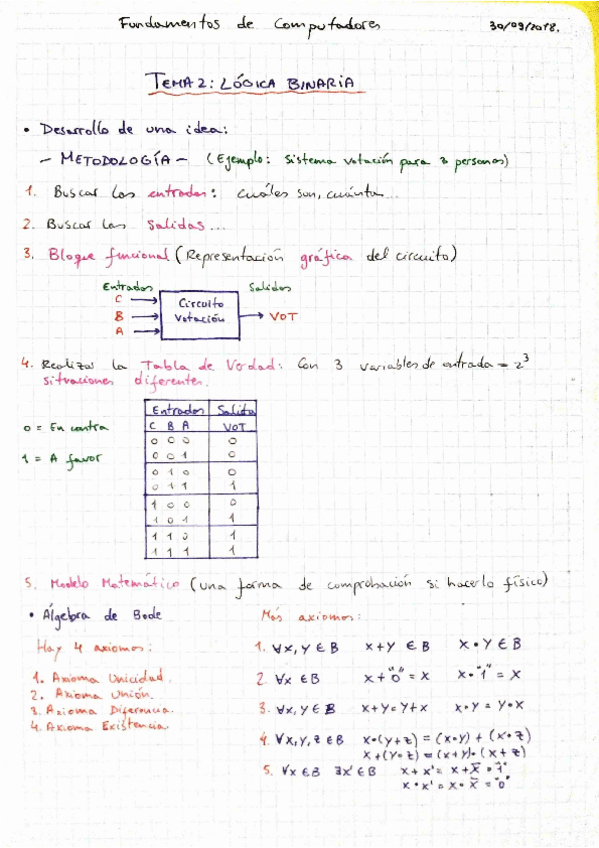 Fundamentos de Computadores
30/09/2018.
TEMA 2: LÓGICA BINARIA
• Desarrollo de una idea:
- METODOLOGÍA - (Ejemplo: Sistema votación para 3 personas)
1. Buscar las entradas: cuáles son, cuánta...
2. Buscar las Salidas...
3. Bloque funcional (Representación gráfica del circuito)
Entradas Salidas
C
B
A
Circuito
Votación
VOT
4. Realizar la Tabla de Verdad: Con 3 variables de entrada = 2³
situaciones diferentes.
0 = En contra
1 = A favor
Entradas Salida
C B A VOT
0 0 0 0
0 0 1 0
0 1 0 0
0 1 1 1
1 0 0 0
1 0 1 1
1 1 0 1
1 1 1 1
5. Modelo Matemático (una forma de comprobación si hacerlo físico)
• Álgebra de Boole
Hay 4 axiomas:
1. Axioma Unicidad.
2. Axioma Unión.
3. Axioma Diferencia.
4. Axioma Existencia
Más axiomas:
1. ∀x, y ∈ B x+y ∈ B x•y ∈ B
2. ∀x ∈ B x+"0" = x x•"1" = x
3. ∀x, y ∈ B x+y = y+x x•y = y•x
4. ∀x, y, z ∈ B x•(y+z) = (x•y) + (x•z)
x+(y•z) = (x+y)•(x+z)
5. ∀x ∈ B ∃x' ∈ B x+x' = x+x̄ = "1"
x•x' = x•x̄ = "0"